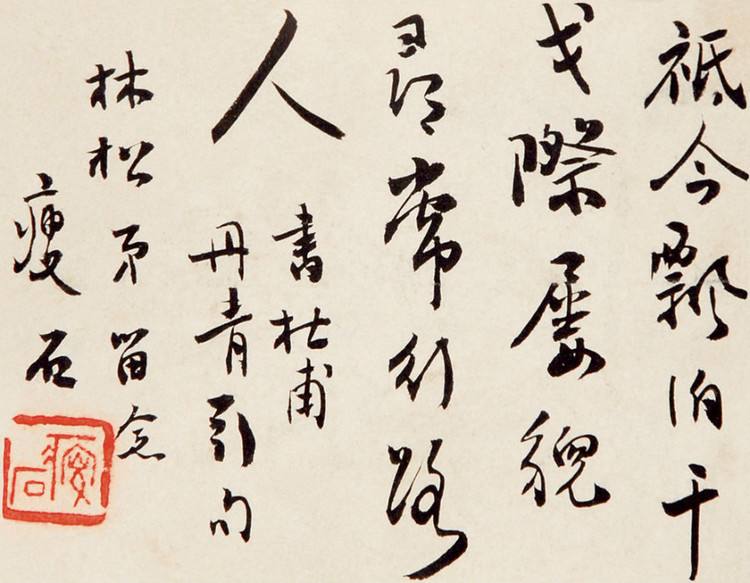 祗今飘泊干
戈際屡貌
尋常行路
人
書杜甫
丹青引句
林松弟留念
瘦石
瘦石